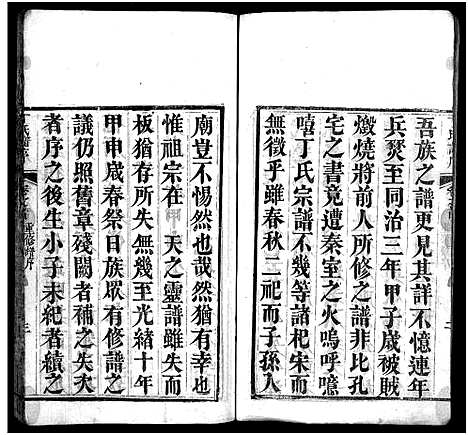 吾族之譜更見其詳不憶連年
兵燹至同治三年甲子歲被賊
燬燒將前人所修之譜非比孔
宅之書竟遭秦室之火嗚呼噫
嘻丁氏宗譜不幾等諸杞宋而
無徵乎雖春秋二祀而子孫入
廟豈不惕然也哉然猶有幸也
惟祖宗在　天之靈譜雖失而
板猶存所失無幾至光緒十年
甲申歲春祭日族眾有修譜之
議仍照舊章殘闕者補之失次
者序之後生小子未紀者續之
重修譜序
三